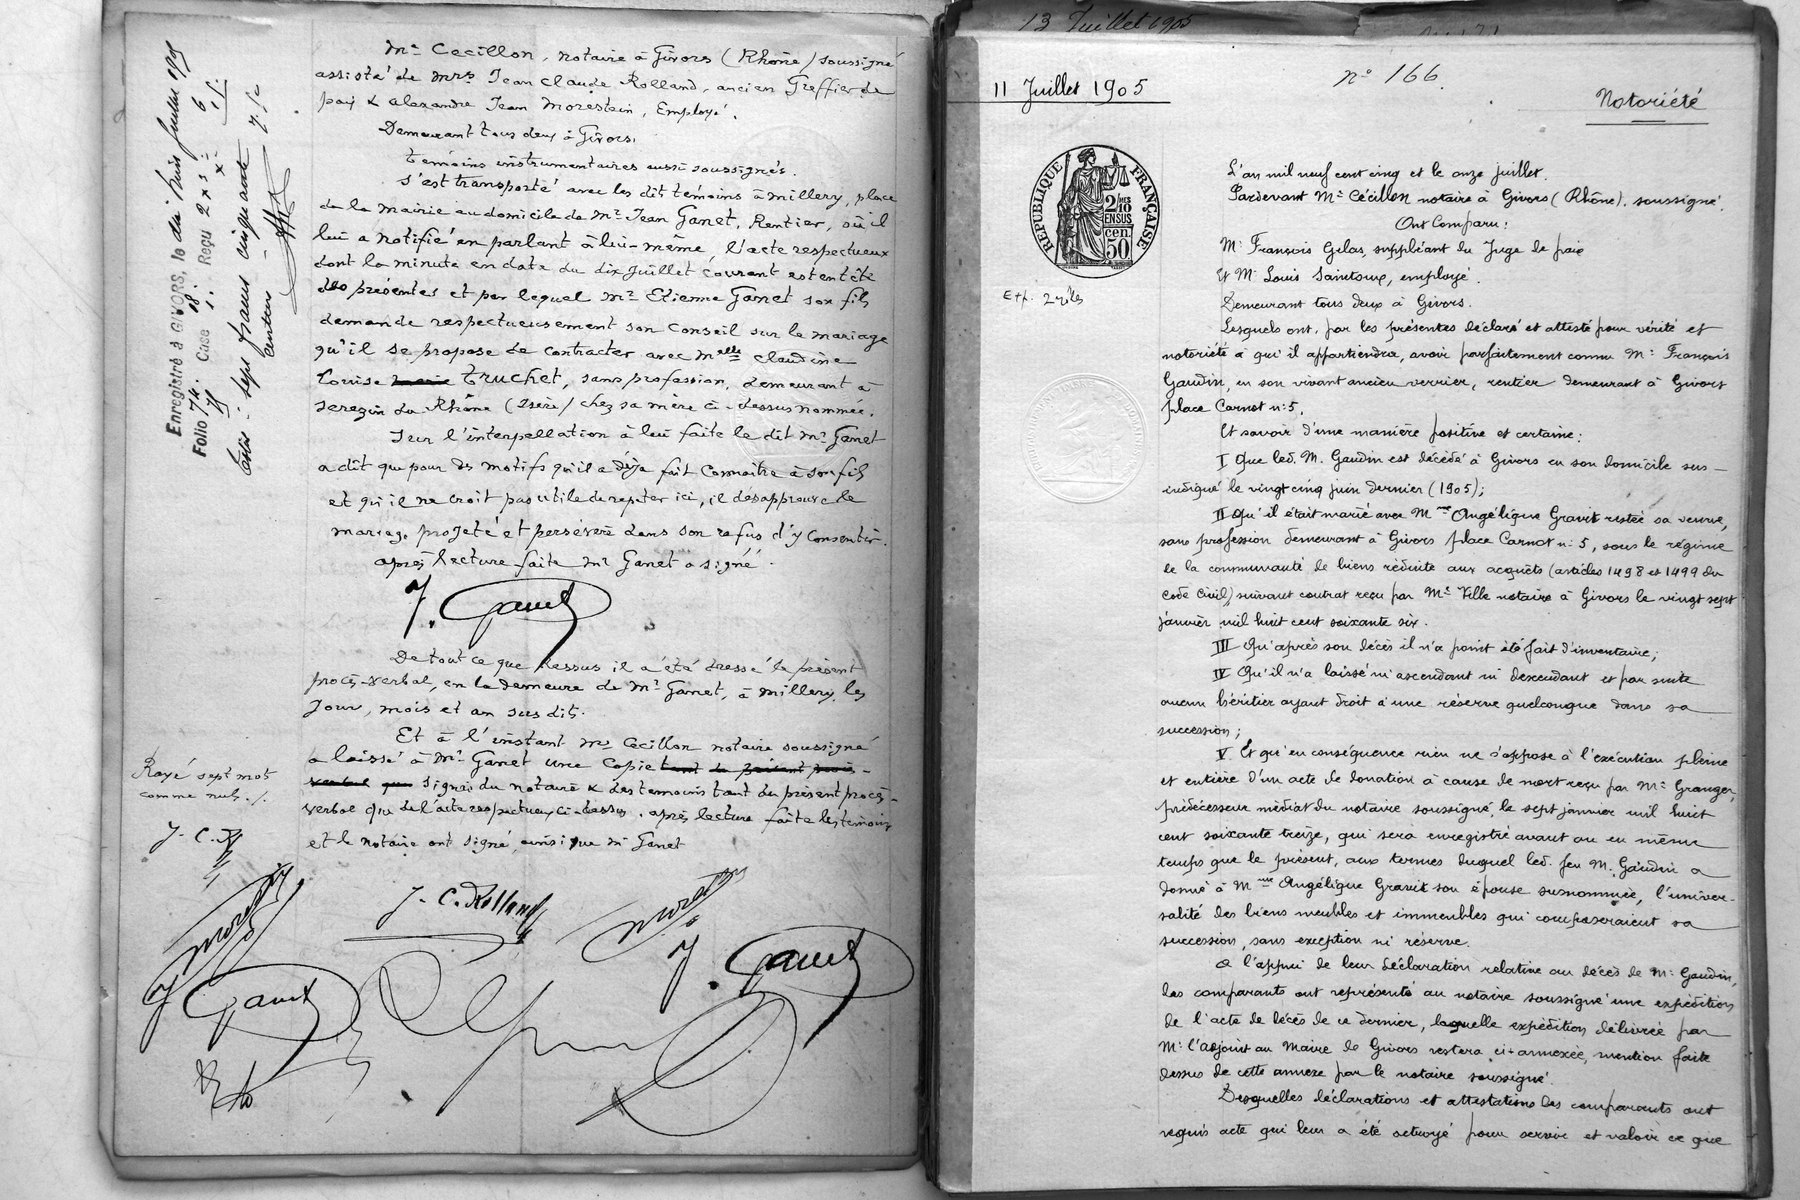 Me Cecillon, notaire à Givors (Rhône) soussigné
assisté de Mrs Jean Claude Rolland, ancien Greffier de
paix & Alexandre Jean Morestein, Employé.
Demeurant tous deux à Givors.
témoins instrumentaires aussi soussignés.
S'est transporté avec les dit temoins à Millery, place
de la Mairie au domicile de Mr. Jean Ganet, Rentier, où il
lui a notifié en parlant à lui-même, l'acte respectueux
dont la minute en date du dix Juillet courant est en tête
des présentes et par lequel Mr Etienne Ganet son fils
demande respectueusement son Conseil sur le mariage
qu'il se propose de contracter avec Melle Claudine
Louise Truchet, sans profession, demeurant à
Serezin du Rhône (Isère) chez sa mère ci-dessus nommée.
Sur l'interpellation à lui faite le dit Mr Ganet
a dit que pour des motifs qu'il a déja fait connaître à son fils
et qu'il ne croit pas utile de repeter ici, il désapprouve le
mariage projeté et persévère dans son refus d'y Consentir.
après lecture faite Mr Ganet a signé.
J. Ganet
De tout ce que dessus il a été dressé le présent
procès-verbal, en la demeure de Mr Ganet, à Millery, les
Jour, mois et an sus dits.
Et à l'instant Me Cecillon notaire soussigné
a laissé à Mr. Ganet une Copie tant du présent procès-
verbal que signée du notaire & des temoins tant du présent procès-
verbal que de l'acte respectueux ci-dessus. après lecture faite les témoins
et le notaire ont signé, ainsi que Mr Ganet
J. C. Rolland
J. Ganet
Ganet
Enregistré à GIVORS, le dix huit Juillet 1905
Folio 74. Case 18. Reçu
sept francs cinquante
Rayé sept mots
comme nuls ./.
J. C. R
13 Juillet 1905
11 Juillet 1905
n° 166.
Notoriété
RÉPUBLIQUE FRANÇAISE
2/10
EN SUS
50 cen.
Exp.
L'an mil neuf cent cinq et le onze juillet.
Pardevant Me Cécillon notaire à Givors (Rhône), soussigné.
Ont Comparu:
M. François Gilas, suppléant du Juge de paix
Et M. Louis Saintoux, employé.
Demeurant tous deux à Givors.
Lesquels ont, par les présentes déclaré et attesté pour vérité et
notoriété à qui il appartiendra, avoir parfaitement connu M. François
Gaudin, en son vivant ancien verrier, rentier demeurant à Givors
place Carnot n: 5.
Et savoir d'une manière positive et certaine:
I Que led. M. Gaudin est décédé à Givors en son domicile sus-
indiqué le vingt cinq juin dernier (1905);
II Qu'il était marié avec Mme Angélique Gravit restée sa veuve,
sans profession demeurant à Givors place Carnot n: 5, sous le régime
de la communauté de biens réduite aux acquêts (articles 1498 et 1499 du
Code Civil) suivant contrat reçu par Me Ville notaire à Givors le vingt sept
janvier mil huit cent soixante six.
III Qu'après son décès il n'a point été fait d'inventaire;
IV Qu'il n'a laissé ni ascendant ni descendant et par suite
aucun héritier ayant droit à une réserve quelconque dans sa
succession;
V Et qu'en conséquence rien ne s'oppose à l'exécution pleine
et entière d'un acte de donation à cause de mort reçu par Me Granger,
prédécesseur médiat du notaire soussigné, le sept janvier mil huit
cent soixante treize, qui sera enregistré avant ou en même
temps que le présent, aux termes duquel led. feu M. Gaudin a
donné à Mme Angélique Gravit son épouse susnommée, l'univer-
salité des biens meubles et immeubles qui composeraient sa
succession, sans exception ni réserve.
A l'appui de leur déclaration relative au décès de M. Gaudin,
les comparants ont représenté au notaire soussigné une expédition
de l'acte de décès de ce dernier, laquelle expédition délivrée par
M. l'adjoint au Maire de Givors restera ci-annexée, mention faite
dessus de cette annexe par le notaire soussigné.
Desquelles déclarations et attestations les comparants ont
requis acte qui leur a été octroyé pour servir et valoir ce que